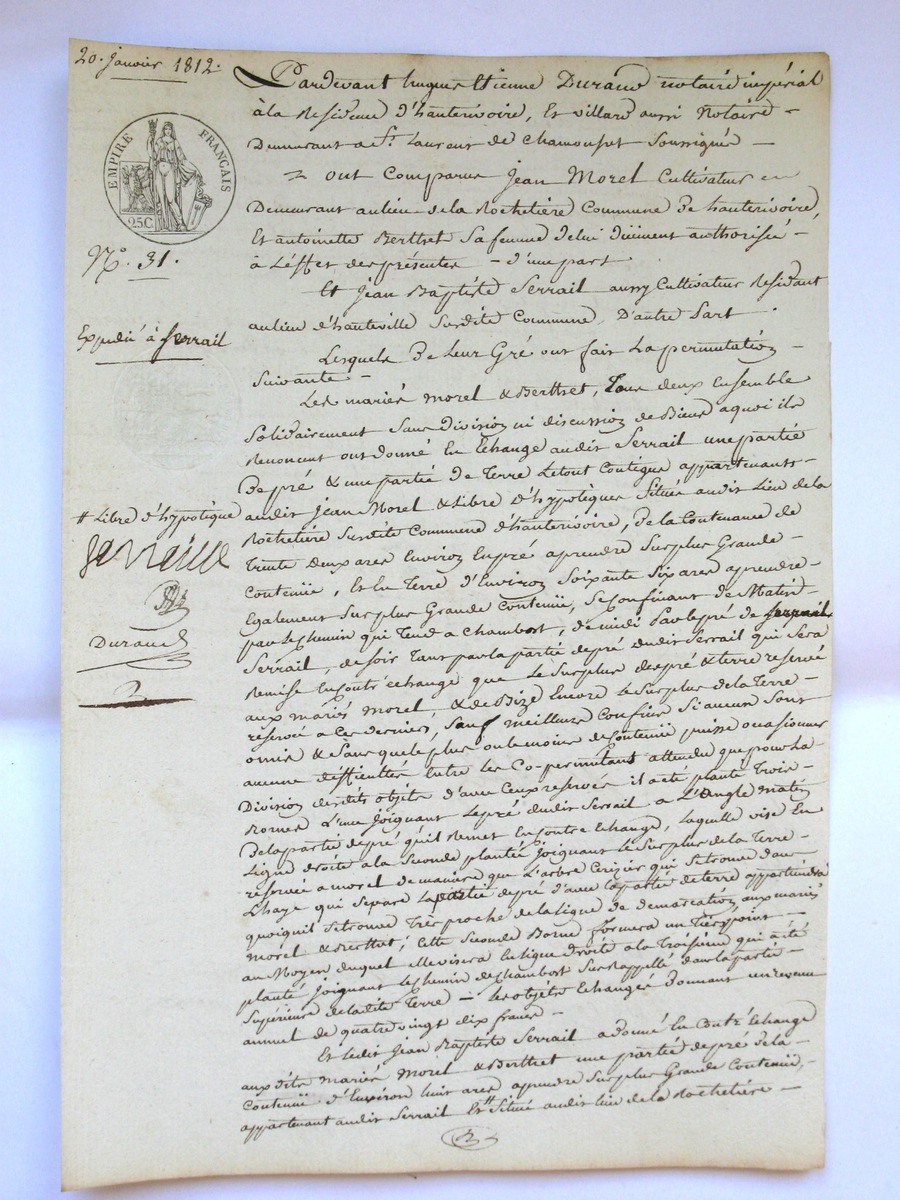 20. Janvier 1812.
EMPIRE FRANÇAIS
25C.
N.o 31.
Expedié à Serrail
# Libre d'hypotèque
Durand
Pardevant hugues Etienne Durand notaire impérial
à la Residence d'hauterivoire, Et villard aussi Notaire -
Demeurant a St. Laurent de Chamousset Soussignés -
ont Comparus Jean Morel Cultivateur en
Demeurant aulieu de la Rochetière Commune De hauterivoire,
Et antoinette Berthet Sa femme de lui düement authorisée -
à L'éffet des présentes - d'une part
Et Jean Baptiste Serrail aussy Cultivateur Residant
aulieu d'hauteville Susdite Commune, D'autre part.
Lesquels De Leur Gré ont fait La permutation -
Suivante -
Les mariés morel & Berthet, Tous deux Ensemble
Solidairement Sans Division ni discussion de Biens aquoi ils
Renoncent ont donné En Echange audit Serrail une partie
De pré & une partie de Terre Letout Contigue appartenants -
audit Jean Morel & Libre D'hypotèques Située audit Lieu de la
Rochetière Susdite Commune d'hauterivoire, de la Contenance de
Trente deux ares Environ En pré aprendre Surplus Grande -
Contenüe, Et En Terre d'Environ Soixante Six ares aprendre -
Egalement Surplus Grande Contenüe, Se Confinant de Matin -
par Le Chemin qui Tend a Chambost, de midi Par le pré de
Serrail, de Soir Tant par la partie de pré dudit Serrail qui Sera
Remise En Contr'echange que Le Surplus des pré & terre reservé
aux mariés morel, & de Bize Encore Le Surplus de la Terre -
réservée a Ces Derniers, Sauf meilleurs Confins Si aucun Sont
omis & Sans que le plus ou le moins de Contenüe puisse ocasionner
aucune difficultés Entre Les Co-permutants attendu que pour La
Division desdits objets d'avec Ceux reservés il a été planté Trois -
Bornes L'une Joignant Le pré dudit Serrail a L'angle matin
De la partie de pré qu'il Remet En Contre Echange, Laquelle vise En
Ligne droite a la Seconde plantée Joignant Le Surplus de la Terre -
réservée a morel de maniere que L'arbre Cerizier qui Se trouve dans
L'haye qui Separe La partie de pré d'avec la partie de terre appartiendra
quoiquil Se trouve Très proche de la Ligne de démarcation aux mariés
morel & Berthet; Cette Seconde Borne formera un Tiers point -
au Moyen duquel Elle visera En Ligne Droite à la Troisieme qui a été
planté Joignant Le Chemin de Chambost Sus Rappellé dans la partie -
Supérieure de ladite Terre - Les objets Echangés Donnant un revenu
annuel de quatre vingt dix francs -
Et Ledit Jean Baptiste Serrail a donné En Contr'Echange
aux dits mariés Morel & Berthet une partie de pré de la -
Contenüe d'Environ huit ares aprendre Surplus Grande Contenüe, -
appartenant audit Serrail Et Situé audit Lieu de la Rochetière -